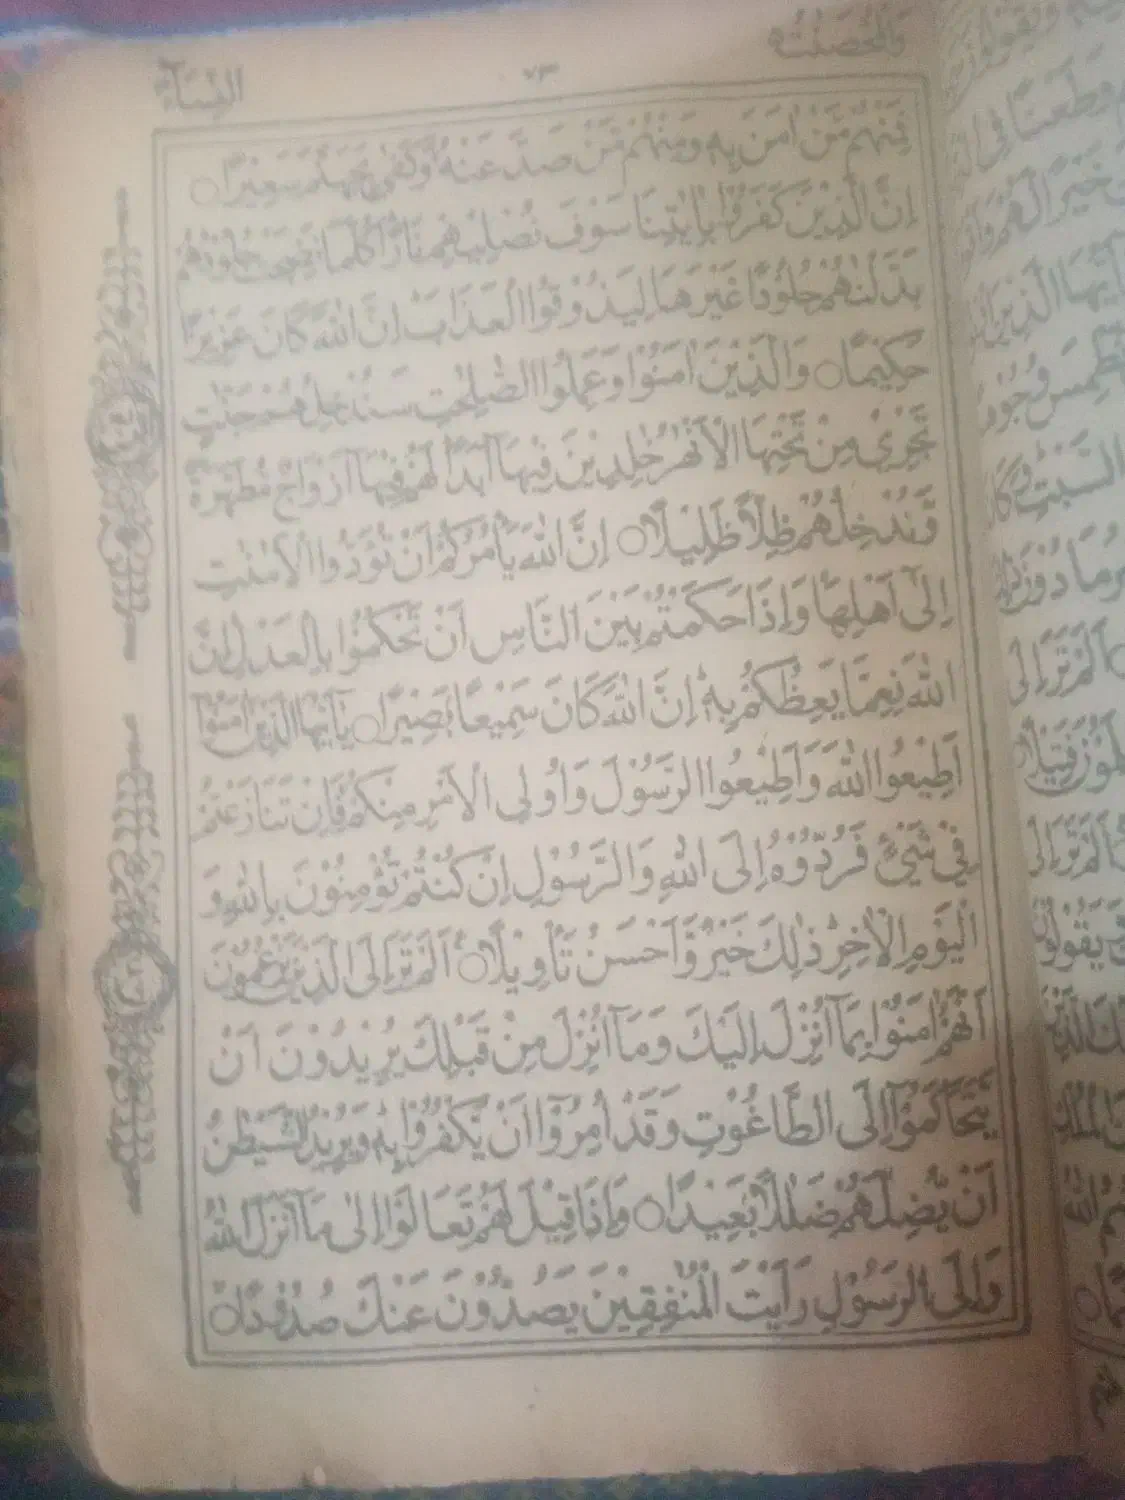 وَالْمُحْصَنٰتُ ٥
٧٣
النِّسَآء
فَمِنْهُمْ مَّنْ اٰمَنَ بِهٖ وَمِنْهُمْ مَّنْ صَدَّ عَنْهُ وَكَفٰى بِجَهَنَّمَ سَعِيْرًا ○
اِنَّ الَّذِيْنَ كَفَرُوْا بِاٰيٰتِنَا سَوْفَ نُصْلِيْهِمْ نَارًا كُلَّمَا نَضِجَتْ جُلُوْدُهُمْ
بَدَّلْنٰهُمْ جُلُوْدًا غَيْرَهَا لِيَذُوْقُوا الْعَذَابَ اِنَّ اللّٰهَ كَانَ عَزِيْزًا
حَكِيْمًا ○ وَالَّذِيْنَ اٰمَنُوْا وَعَمِلُوا الصّٰلِحٰتِ سَنُدْخِلُهُمْ جَنّٰتٍ
تَجْرِيْ مِنْ تَحْتِهَا الْاَنْهٰرُ خٰلِدِيْنَ فِيْهَآ اَبَدًا لَهُمْ فِيْهَآ اَزْوَاجٌ مُّطَهَّرَةٌ
وَّنُدْخِلُهُمْ ظِلًّا ظَلِيْلًا ○ اِنَّ اللّٰهَ يَاْمُرُكُمْ اَنْ تُؤَدُّوا الْاَمٰنٰتِ
اِلٰٓى اَهْلِهَا وَاِذَا حَكَمْتُمْ بَيْنَ النَّاسِ اَنْ تَحْكُمُوْا بِالْعَدْلِ اِنَّ
اللّٰهَ نِعِمَّا يَعِظُكُمْ بِهٖ اِنَّ اللّٰهَ كَانَ سَمِيْعًا بَصِيْرًا ○ يٰٓاَيُّهَا الَّذِيْنَ اٰمَنُوْٓا
اَطِيْعُوا اللّٰهَ وَاَطِيْعُوا الرَّسُوْلَ وَاُولِى الْاَمْرِ مِنْكُمْ فَاِنْ تَنَازَعْتُمْ
فِيْ شَيْءٍ فَرُدُّوْهُ اِلَى اللّٰهِ وَالرَّسُوْلِ اِنْ كُنْتُمْ تُؤْمِنُوْنَ بِاللّٰهِ وَ
الْيَوْمِ الْاٰخِرِ ذٰلِكَ خَيْرٌ وَّاَحْسَنُ تَاْوِيْلًا ○ اَلَمْ تَرَ اِلَى الَّذِيْنَ يَزْعُمُوْنَ
اَنَّهُمْ اٰمَنُوْا بِمَآ اُنْزِلَ اِلَيْكَ وَمَآ اُنْزِلَ مِنْ قَبْلِكَ يُرِيْدُوْنَ اَنْ
يَّتَحَاكَمُوْٓا اِلَى الطَّاغُوْتِ وَقَدْ اُمِرُوْٓا اَنْ يَّكْفُرُوْا بِهٖ وَيُرِيْدُ الشَّيْطٰنُ
اَنْ يُّضِلَّهُمْ ضَلٰلًا بَعِيْدًا ○ وَاِذَا قِيْلَ لَهُمْ تَعَالَوْا اِلٰى مَآ اَنْزَلَ اللّٰهُ
وَاِلَى الرَّسُوْلِ رَاَيْتَ الْمُنٰفِقِيْنَ يَصُدُّوْنَ عَنْكَ صُدُوْدًا ○